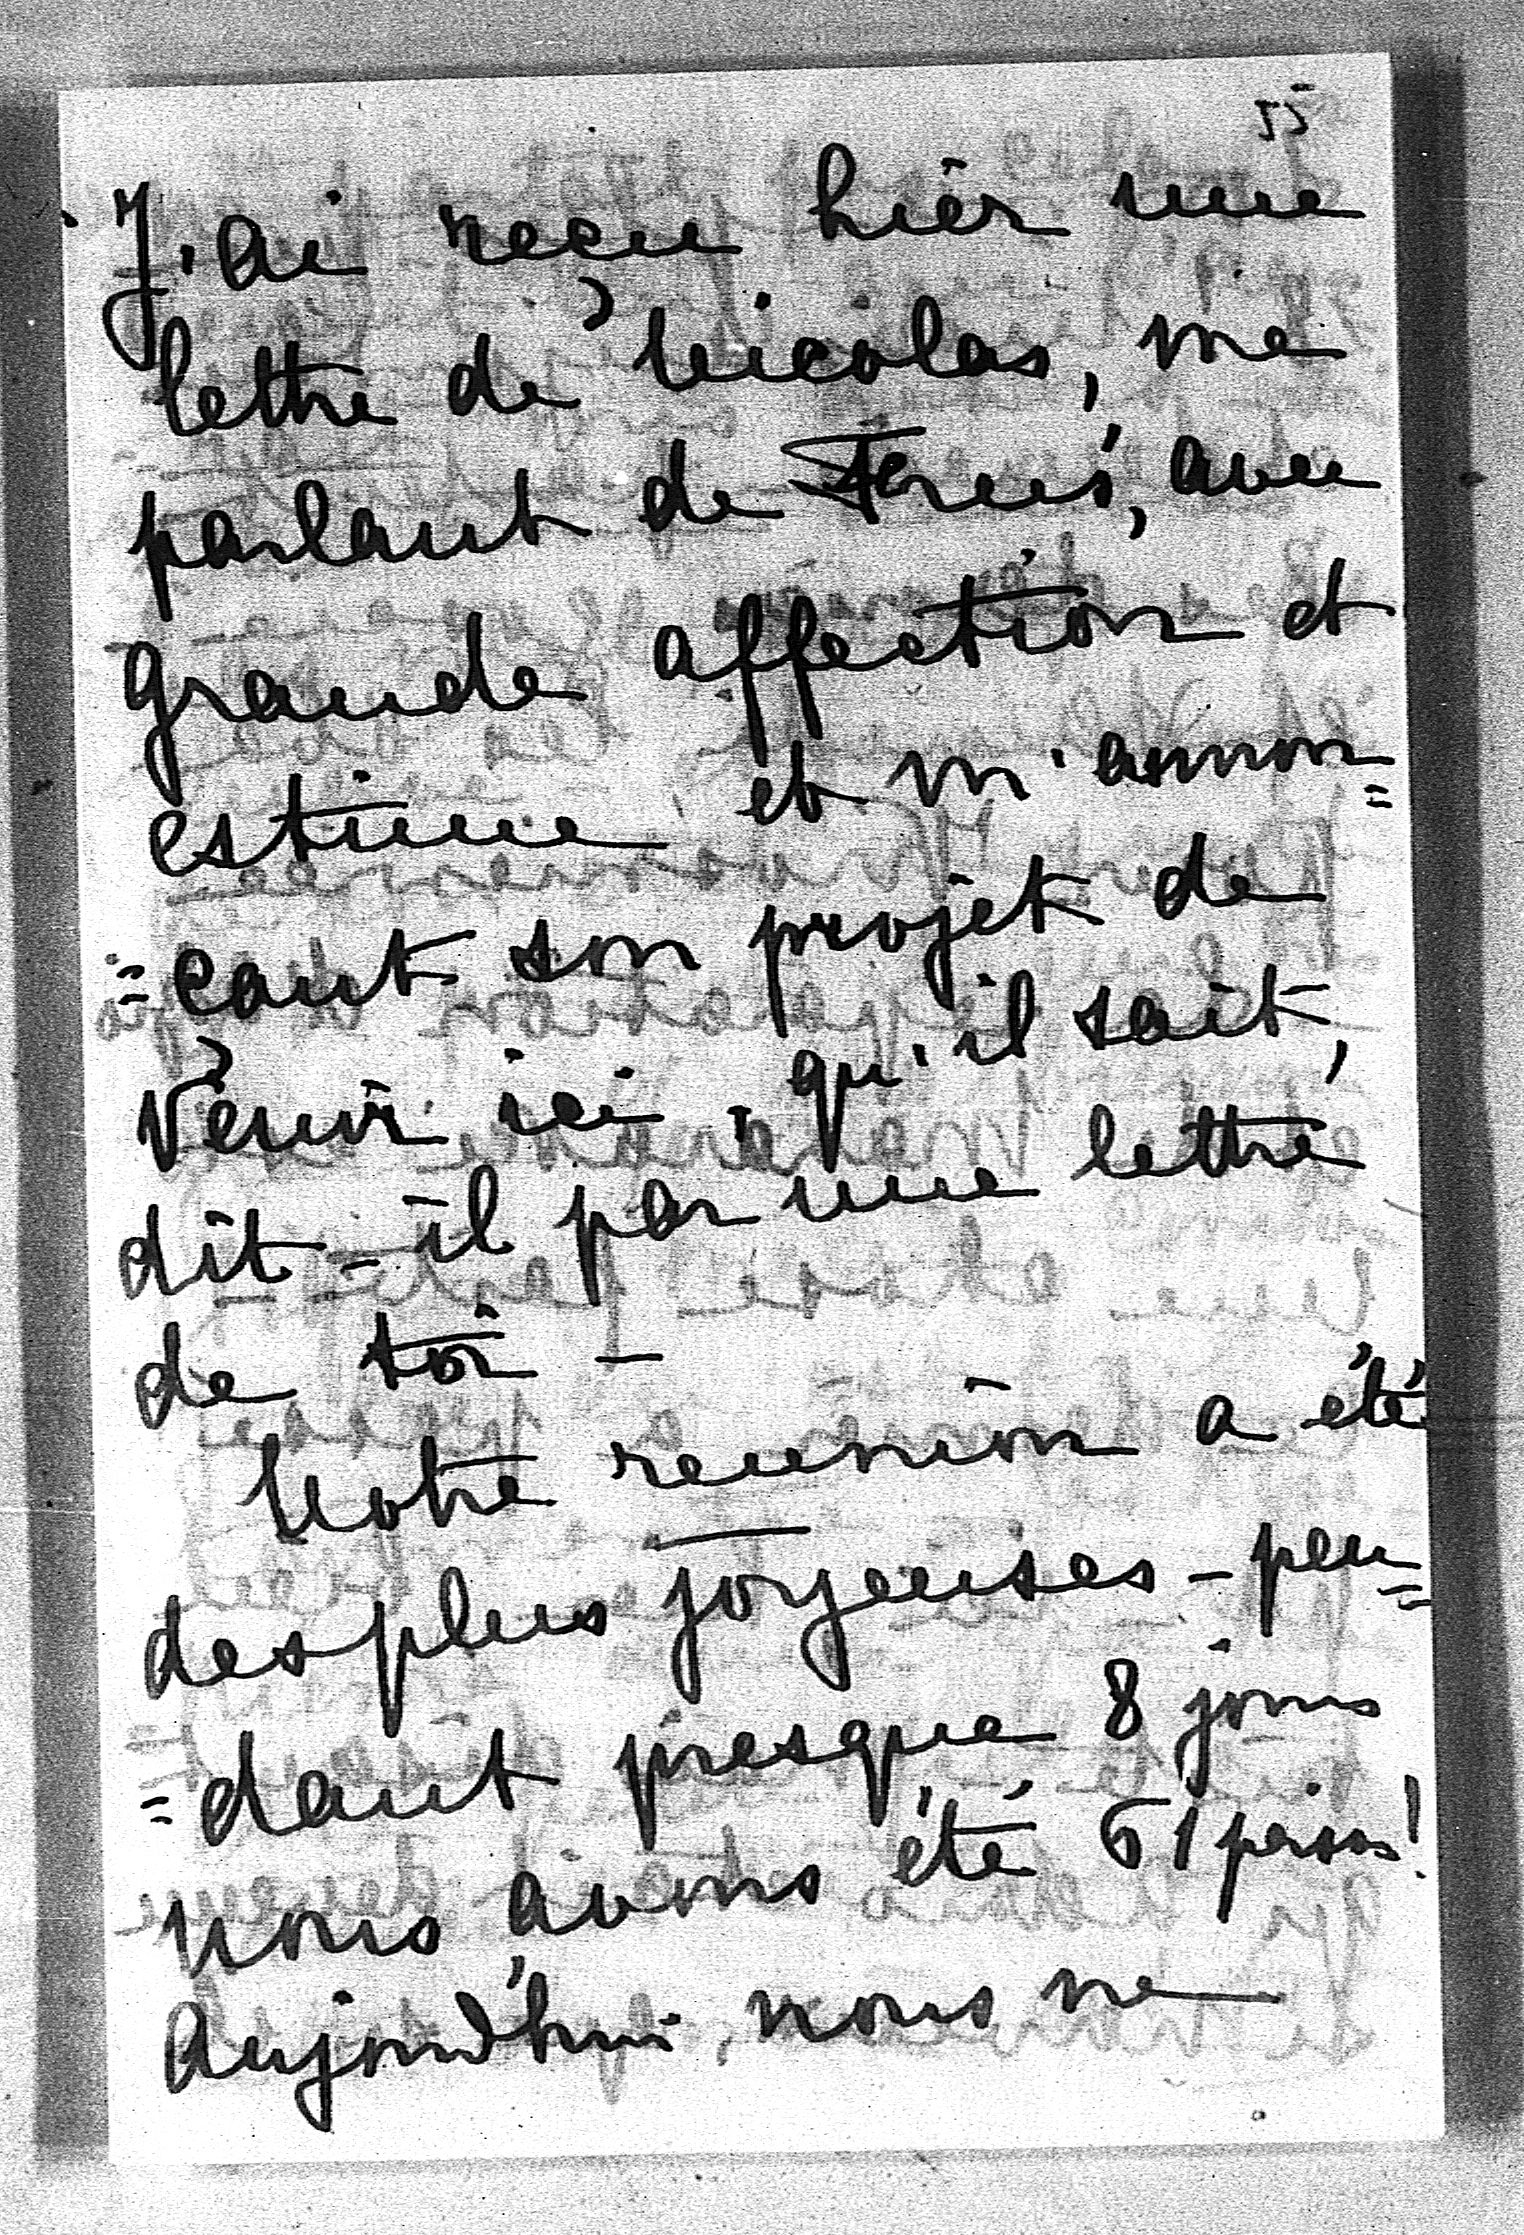 55
J'ai reçu hier une
lettre de Nicolas, me
parlant de avec
grande affection et
estime et m'annon=
=cant son projet de
venir ici, qu'il sait,
dit-il par une lettre
de toi -
Notre reunion a été
des plus joyeuses - pen=
=dant presque 8 jours
nous avons été 61 persos!
Aujourd'hui, nous ne